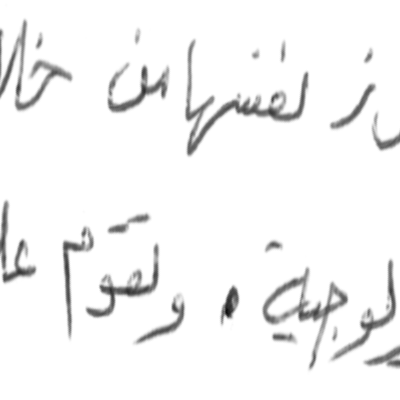 رز نفسها من خلا
لوجية . وتقوم عا